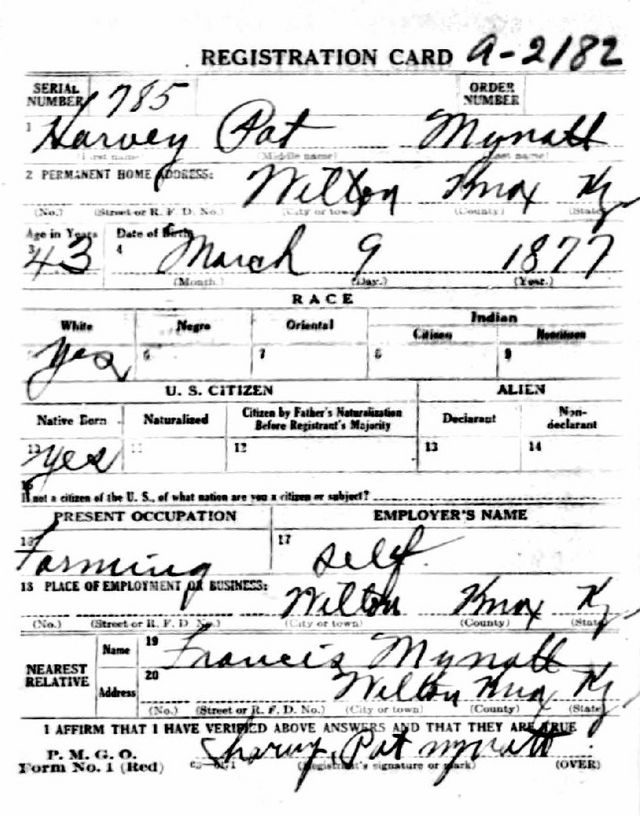 REGISTRATION CARD A-2182
SERIAL NUMBER 1785 ORDER NUMBER
1 Harvey Pat Mynatt
(First name) (Middle name) (Last name)
2 PERMANENT HOME ADDRESS: Wilton Knox Ky
(No.) (Street or R. F. D. No.) (City or town) (County) (State)
Age in Years Date of Birth
3 43 4 March 9 1877
(Month.) (Day.) (Year.)
RACE
White Negro Oriental Indian
Citizen Noncitizen
Yes 6 7 8 9
U. S. CITIZEN ALIEN
Native Born Naturalized Citizen by Father's Naturalization Before Registrant's Majority Declarant Non-declarant
10 yes 11 12 13 14
15
If not a citizen of the U. S., of what nation are you a citizen or subject?
PRESENT OCCUPATION EMPLOYER'S NAME
16 Farming 17 self.
18 PLACE OF EMPLOYMENT OR BUSINESS: Wilton Knox Ky
(No.) (Street or R. F. D. No.) (City or town) (County) (State)
NEAREST RELATIVE Name 19 Francis Mynatt
Address 20 Wilton Knox Ky
(No.) (Street or R. F. D. No.) (City or town) (County) (State)
I AFFIRM THAT I HAVE VERIFIED ABOVE ANSWERS AND THAT THEY ARE TRUE
P. M. G. O. Pat mynatt
Form No. 1 (Red) (Registrant's signature or mark) (OVER)